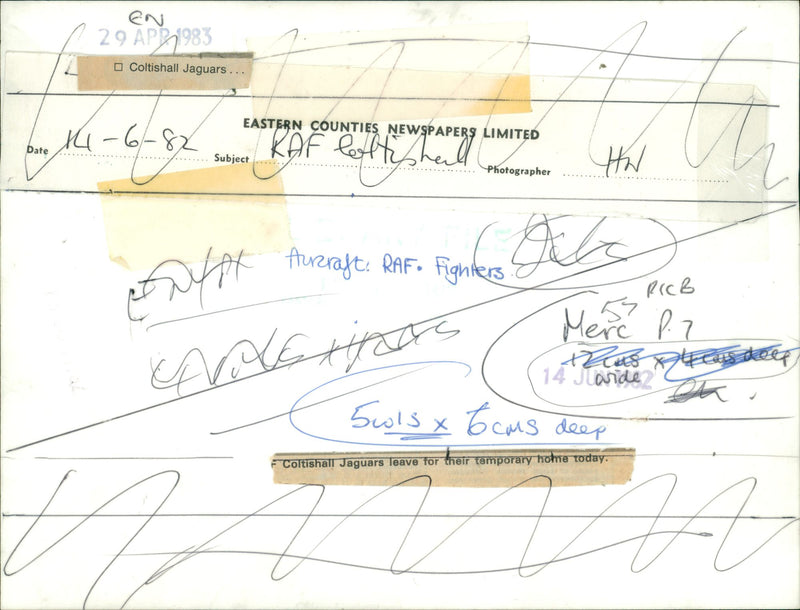 EN
29 APR 1983
☐ Coltishall Jaguars . . .
EASTERN COUNTIES NEWSPAPERS LIMITED
Date 14-6-82 Subject RAF Coltishall Photographer HW
Aircraft: RAF. Fighters
PIC B
Merc P.7
12 cms x 4 cms deep
wide
14 JUN 1982
5 cols x 6 cms deep
Coltishall Jaguars leave for their temporary home today.